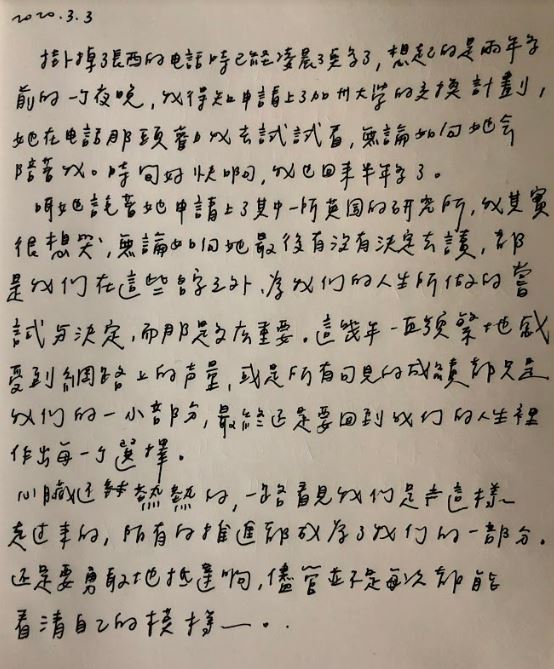 2020.3.3
掛掉了長西的电話時已經凌晨3點多了，想起的是兩年多
前的一个夜晚，我得知申請上了加州大学的交換計劃，
她在电話那頭勸我去試試看，無論如何她会
陪著我。時间好快啊，我也回來半年多了。
听她說著她申請上了其中一所英国的研究所，我其實
很想哭，無論如何她最後有沒有決定去讀，都
是我們在這些名字之外，為我們的人生所做的嘗
試与決定，而那是多么重要。這幾年一直頻繁地感
受到網路上的声量，或是所有可見的成績都只是
我們的一小部分，最終还是要回到我們的人生裡
作出每一个選擇。
心臟还熱熱的，一路看見我們是這樣
走过來的，所有的推進都成為了我們的一部分。
还是要勇敢地抵達啊，儘管並不是每次都能
看清自己的模樣—。